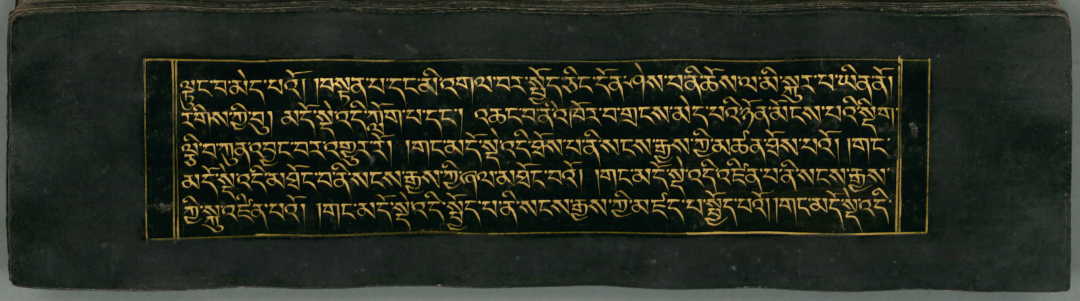 ལྟུང་བ་མེད་པའོ། །བསྟན་པ་དང་མི་འགལ་བར་སྤྱོད་ཅིང་དོན་ཤེས་བ་ནི་ཆོས་ལ་མི་སྐུར་པ་ཡིནནོ།
རིགིས་ཀྱི་བུ། མདོ་སྡེ་འདི་ཀློག་པ་དང་། འཆང་བ་ནི་འཁོར་བ་གྲངས་མེད་བའི་ཉོན་མོངས་པའི་སྡིག་
ལྟི་བ་ཀུན་འབྱང་བར་འགྱུར་རོ། །གང་མདོ་སྡེ་འདི་ཐོས་པ་ནི་སངས་རྒྱས་ཀྱི་མཚན་ཐོས་པའོ། །གང་
མདོ་སྡེ་འདི་མཐོང་བ་ནི་སངས་རྒྱས་ཀྱི་ཞལ་མཐོང་བའོ། །གང་མདོ་སྡེ་འདི་འཛིན་པ་ནི་སངས་རྒྱས་
ཀྱི་སྐུ་འཛིན་པའོ། །གང་མདོ་སྡེ་འདི་སྤྱོད་པ་ནི་སངས་རྒྱས་ཀྱི་མཛད་པ་སྤྱོད་པའོ། །གང་མདོ་སྡེ་འདི་